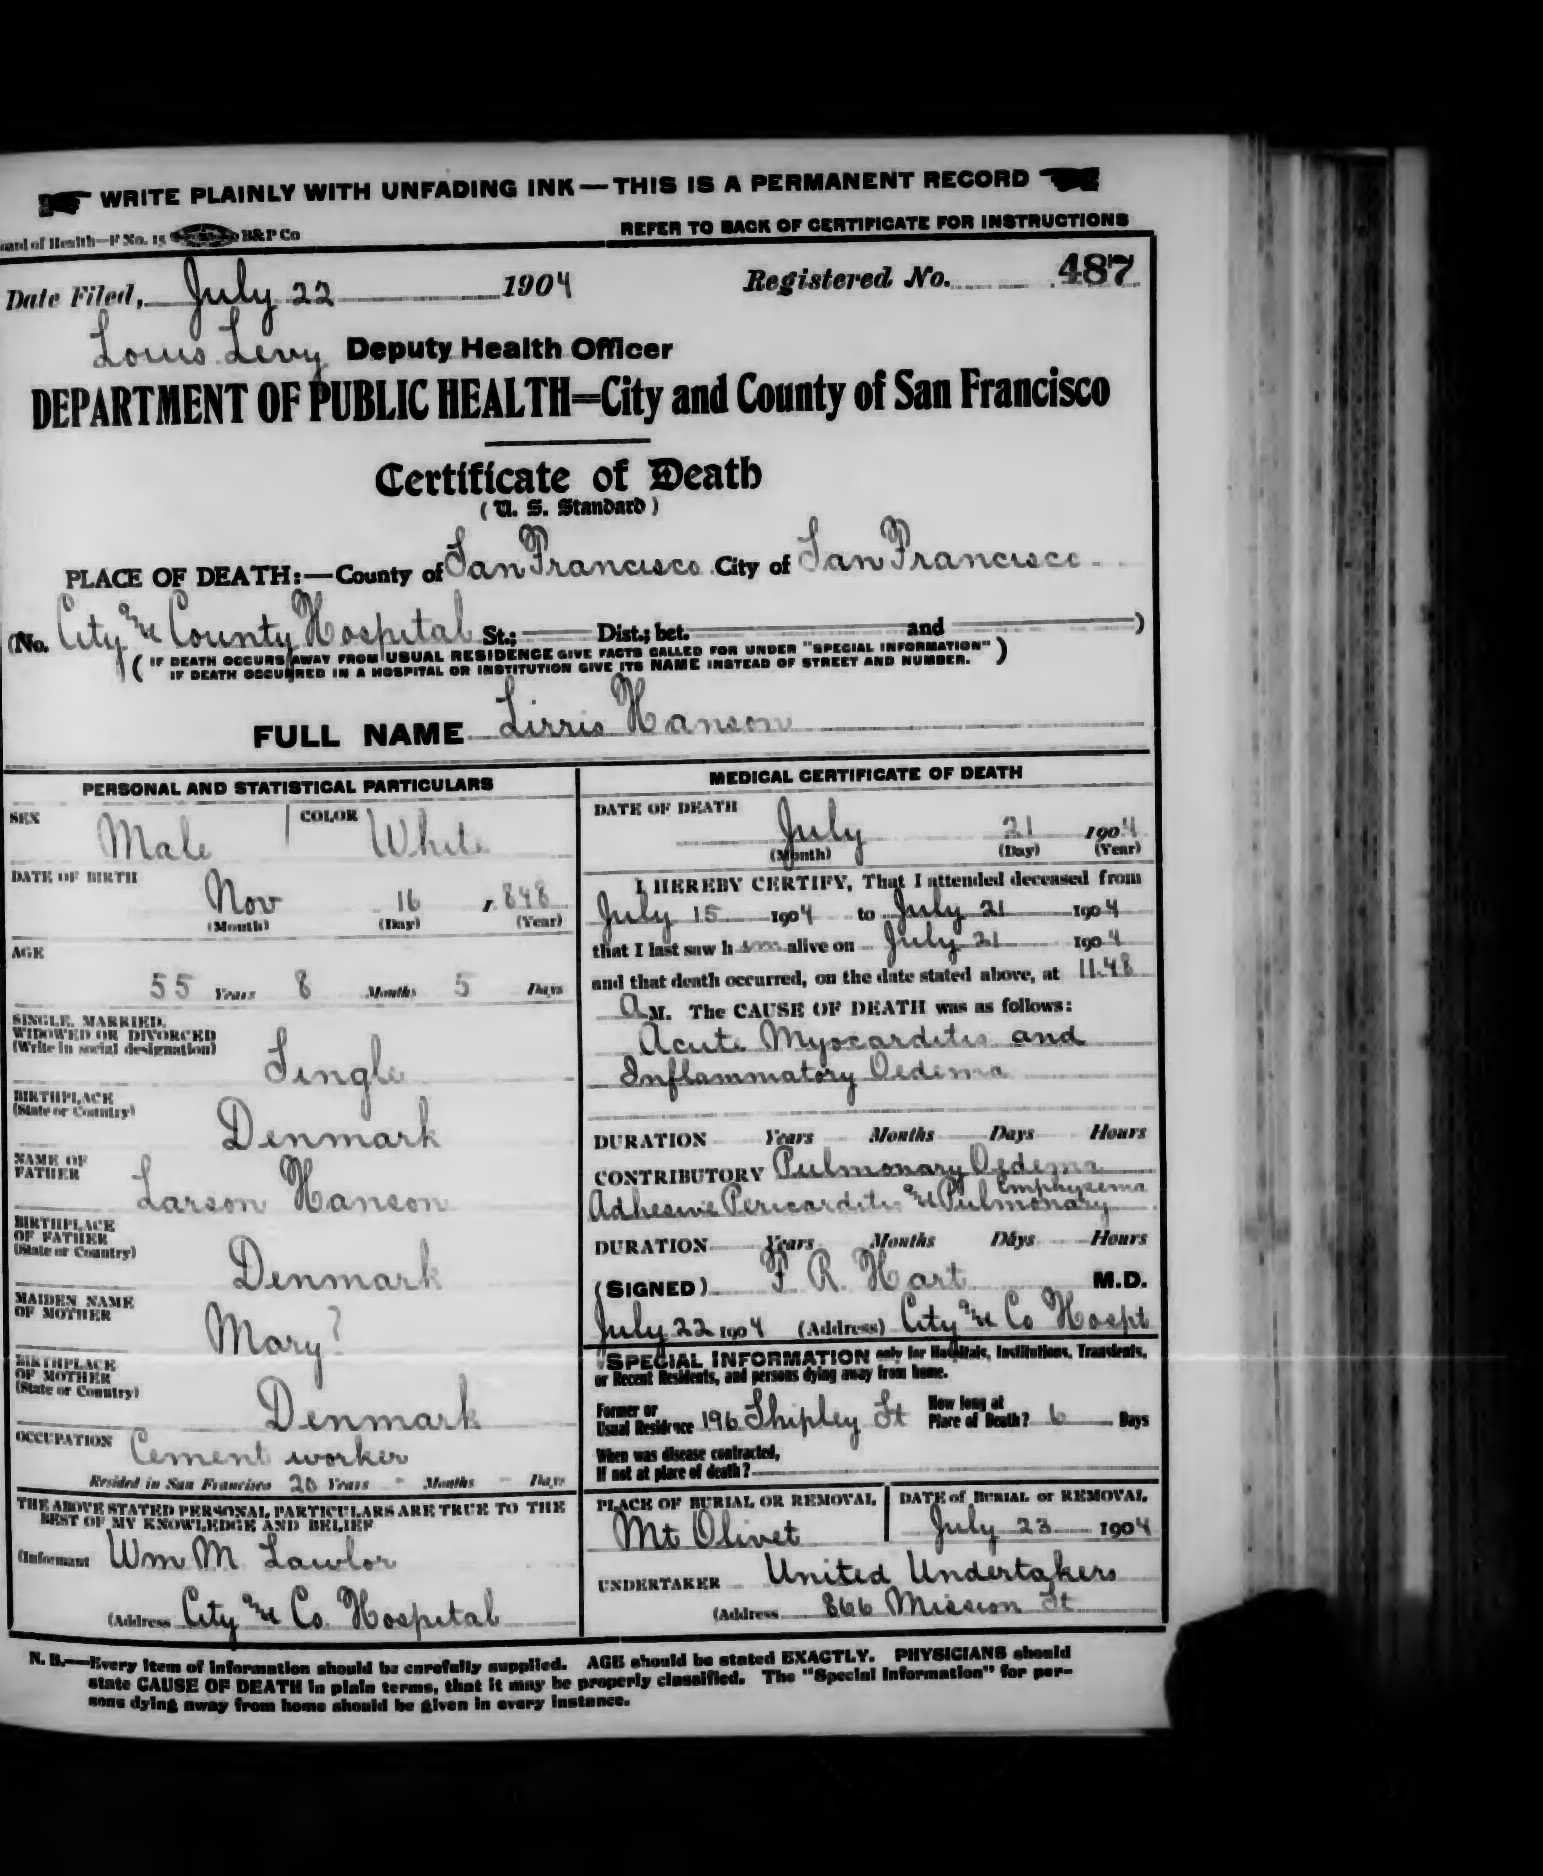 WRITE PLAINLY WITH UNFADING INK—THIS IS A PERMANENT RECORD
oard of Health—F No. 15 B&P Co
REFER TO BACK OF CERTIFICATE FOR INSTRUCTIONS
Date Filed, July 22 1904 Registered No. 487
Louis Levy Deputy Health Officer
DEPARTMENT OF PUBLIC HEALTH=City and County of San Francisco
Certificate of Death
(U. S. Standard)
PLACE OF DEATH:—County of San Francisco City of San Francisco
(No. City and County Hospital St.; Dist.; bet. and )
( IF DEATH OCCURS AWAY FROM USUAL RESIDENCE GIVE FACTS CALLED FOR UNDER "SPECIAL INFORMATION" )
IF DEATH OCCURRED IN A HOSPITAL OR INSTITUTION GIVE ITS NAME INSTEAD OF STREET AND NUMBER.
FULL NAME Lirris Hanson
PERSONAL AND STATISTICAL PARTICULARS
SEX Male COLOR White
DATE OF BIRTH
Nov 16 , 848
(Month) (Day) (Year)
AGE
55 Years 8 Months 5 Days
SINGLE, MARRIED,
WIDOWED OR DIVORCED
(Write in social designation)
Single
BIRTHPLACE
(State or Country)
Denmark
NAME OF
FATHER
Larson Hanson
BIRTHPLACE
OF FATHER
(State or Country)
Denmark
MAIDEN NAME
OF MOTHER
Mary ?
BIRTHPLACE
OF MOTHER
(State or Country)
Denmark
OCCUPATION Cement worker
Resided in San Francisco 20 Years - Months - Days
THE ABOVE STATED PERSONAL PARTICULARS ARE TRUE TO THE
BEST OF MY KNOWLEDGE AND BELIEF
(Informant Wm M. Lawlor
(Address City and Co. Hospital
MEDICAL CERTIFICATE OF DEATH
DATE OF DEATH
July 21 1904
(Month) (Day) (Year)
I HEREBY CERTIFY, That I attended deceased from
July 15 1904 to July 21 1904
that I last saw h im alive on July 21 1904
and that death occurred, on the date stated above, at 11.48
A M. The CAUSE OF DEATH was as follows:
Acute Myocarditis and
Inflammatory Oedema
DURATION Years Months Days Hours
CONTRIBUTORY Pulmonary Oedema
Adhesive Pericarditis and Pulmonary Emphysema
DURATION Years Months Days Hours
(SIGNED) F. R. Hart M.D.
July 22 1904 (Address) City and Co Hospt
SPECIAL INFORMATION only for Hospitals, Institutions, Transients,
or Recent Residents, and persons dying away from home.
Former or
Usual Residence 196 Shipley St
How long at
Place of Death? 6 Days
When was disease contracted,
If not at place of death?
PLACE OF BURIAL OR REMOVAL
Mt Olivet
DATE of BURIAL or REMOVAL
July 23 1904
UNDERTAKER United Undertakers
(Address 866 Mission St
N. B.—Every item of information should be carefully supplied. AGE should be stated EXACTLY. PHYSICIANS should
state CAUSE OF DEATH in plain terms, that it may be properly classified. The "Special Information" for per-
sons dying away from home should be given in every instance.